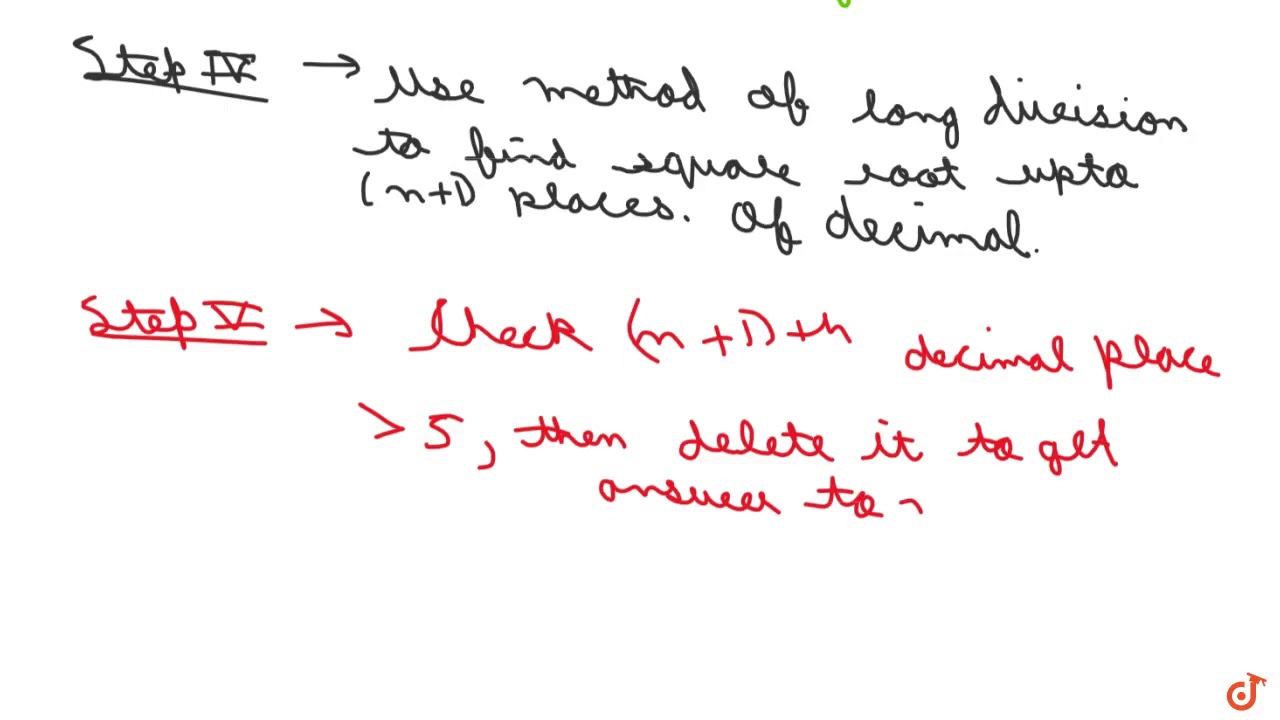 Step IV → Use method of long division
to find square root upto
(n+1) places. Of decimal.
Step V → Check (n+1)th decimal place
> 5, then delete it to get
answer to